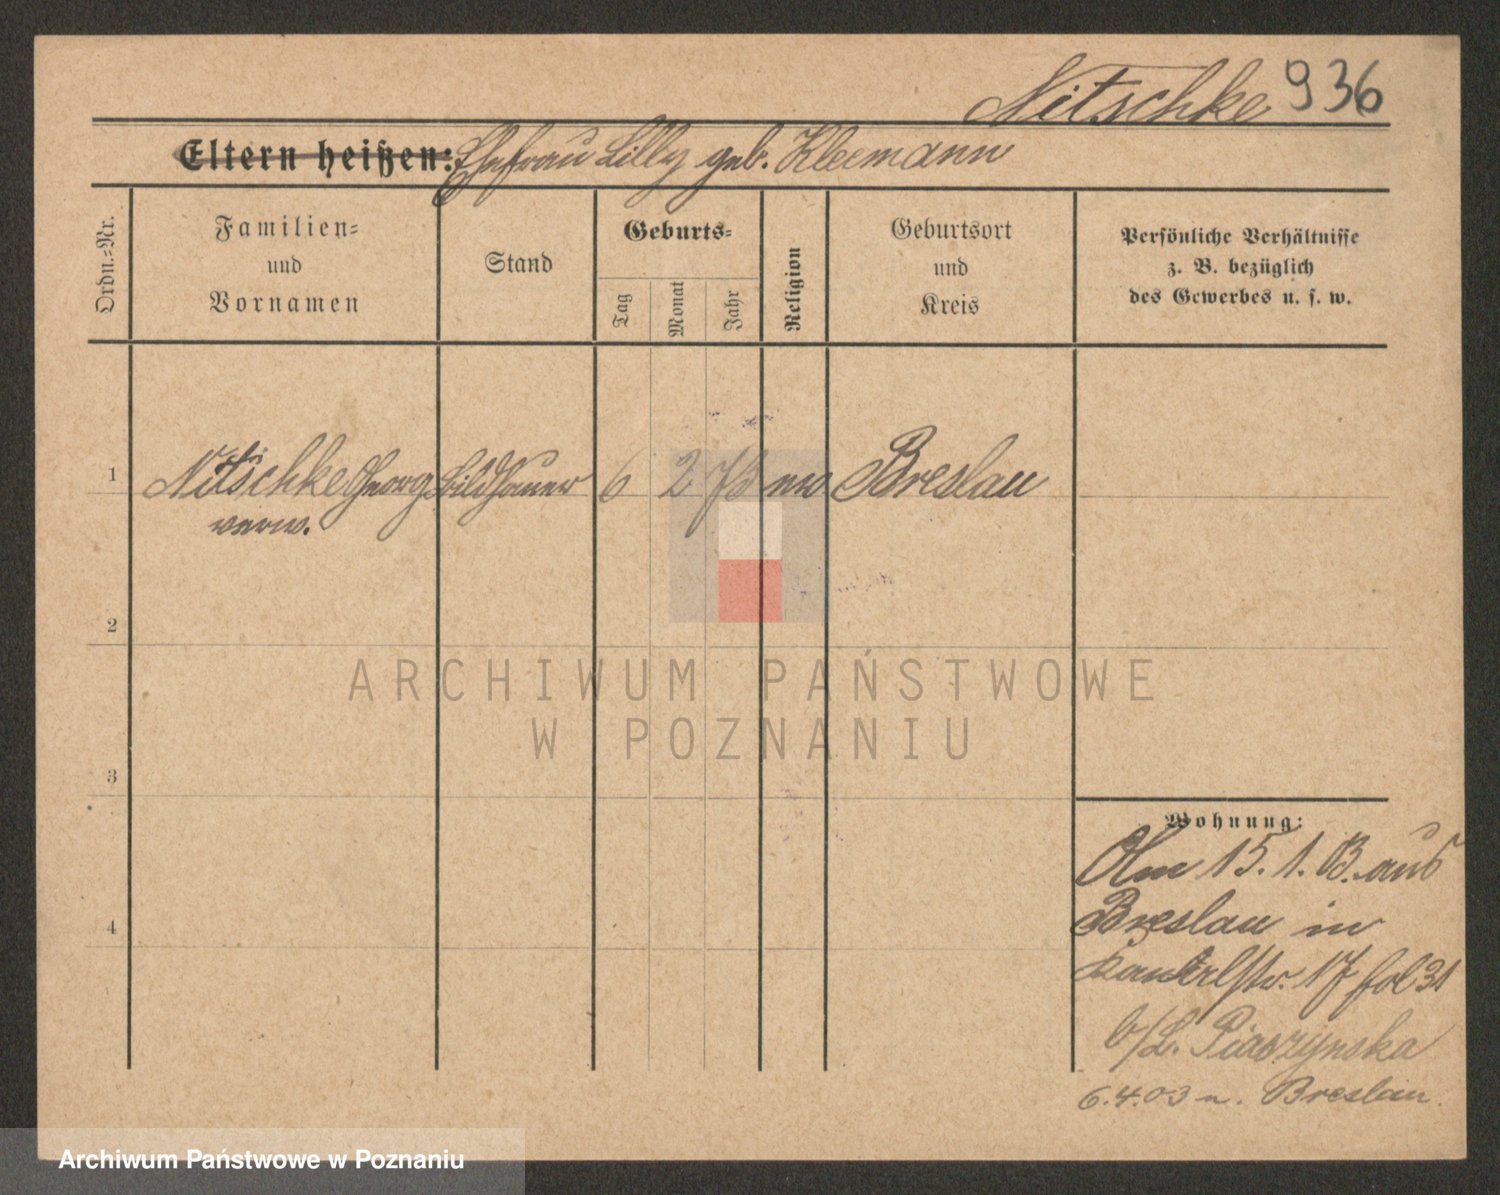 Nitschke 936
Eltern heißen: Ehefrau Lilly geb. Kleemann
Ordn.-Nr.
Familien-
und
Vornamen
Stand
Geburts-
Tag
Monat
Jahr
Religion
Geburtsort
und
Kreis
Persönliche Verhältnisse
z. B. bezüglich
des Gewerbes u. s. w.
1 Nitschke Georg Bildhauer 6 2 75 ew Breslau
verw.
2
ARCHIWUM PAŃSTWOWE
W POZNANIU
3
Wohnung:
Am 15. 1. 03. aus
Breslau in
17 fol 31
b/L. Piaszynska
4
6.4.03 n. Breslau.
Archiwum Państwowe w Poznaniu